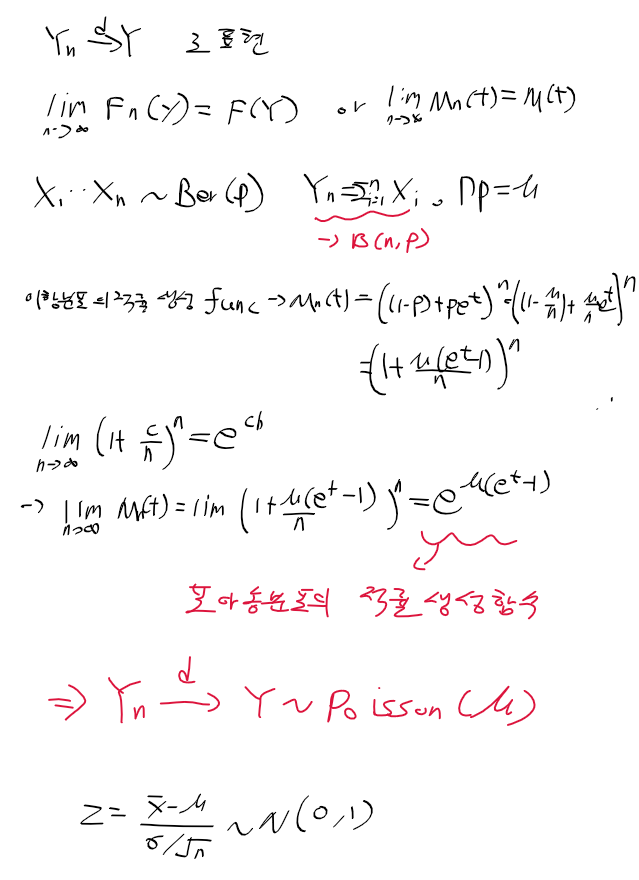 Yn →d Y 로 표현
lim n→∞ Fn(y) = F(Y) or lim n→∞ Mn(t) = M(t)
X1 ·· Xn ~ Ber(p) Yn = Σi=1^n Xi. np = μ
→ B(n, p)
이항분포의 적률 생성 func → Mn(t) = ((1-p)+pe^t)^n = ((1-μ/n)+μ/n e^t)^n
= (1+ μ(e^t-1)/n)^n
lim n→∞ (1+ c/n)^n = e^cb
→ lim n→∞ M(t) = lim (1+ μ(e^t-1)/n)^n = e^μ(e^t-1)
포아송분포의 적률 생성함수
⇒ Yn →d Y ~ Poisson (μ)
Z = (x̄-μ)/(σ/√n) ~ N(0,1)